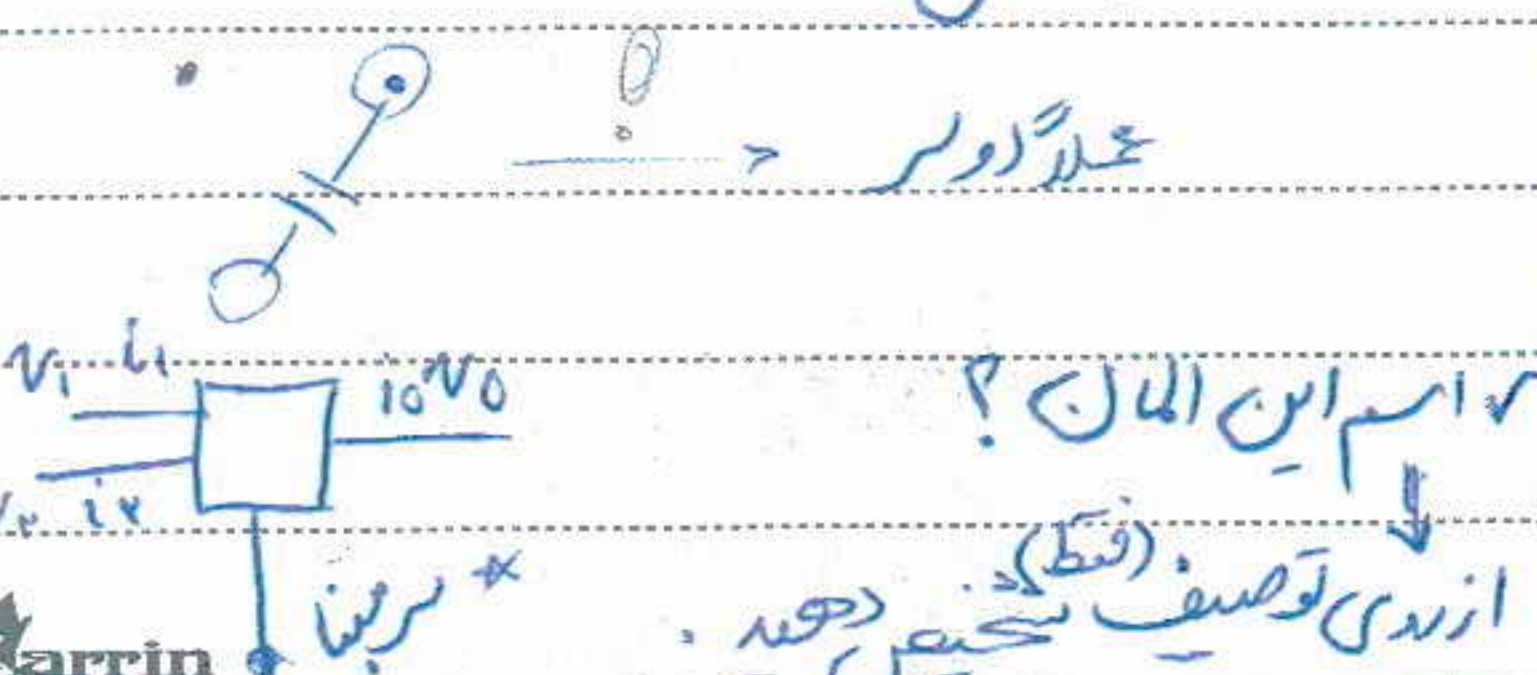 عملاً دو سر
v₁ i₁
i₀ v₀
✓ اسم این المان ؟
v₂ i₂
از روی توصیف (فقط) تشخیص دهید .
* سر مبنا
arrin